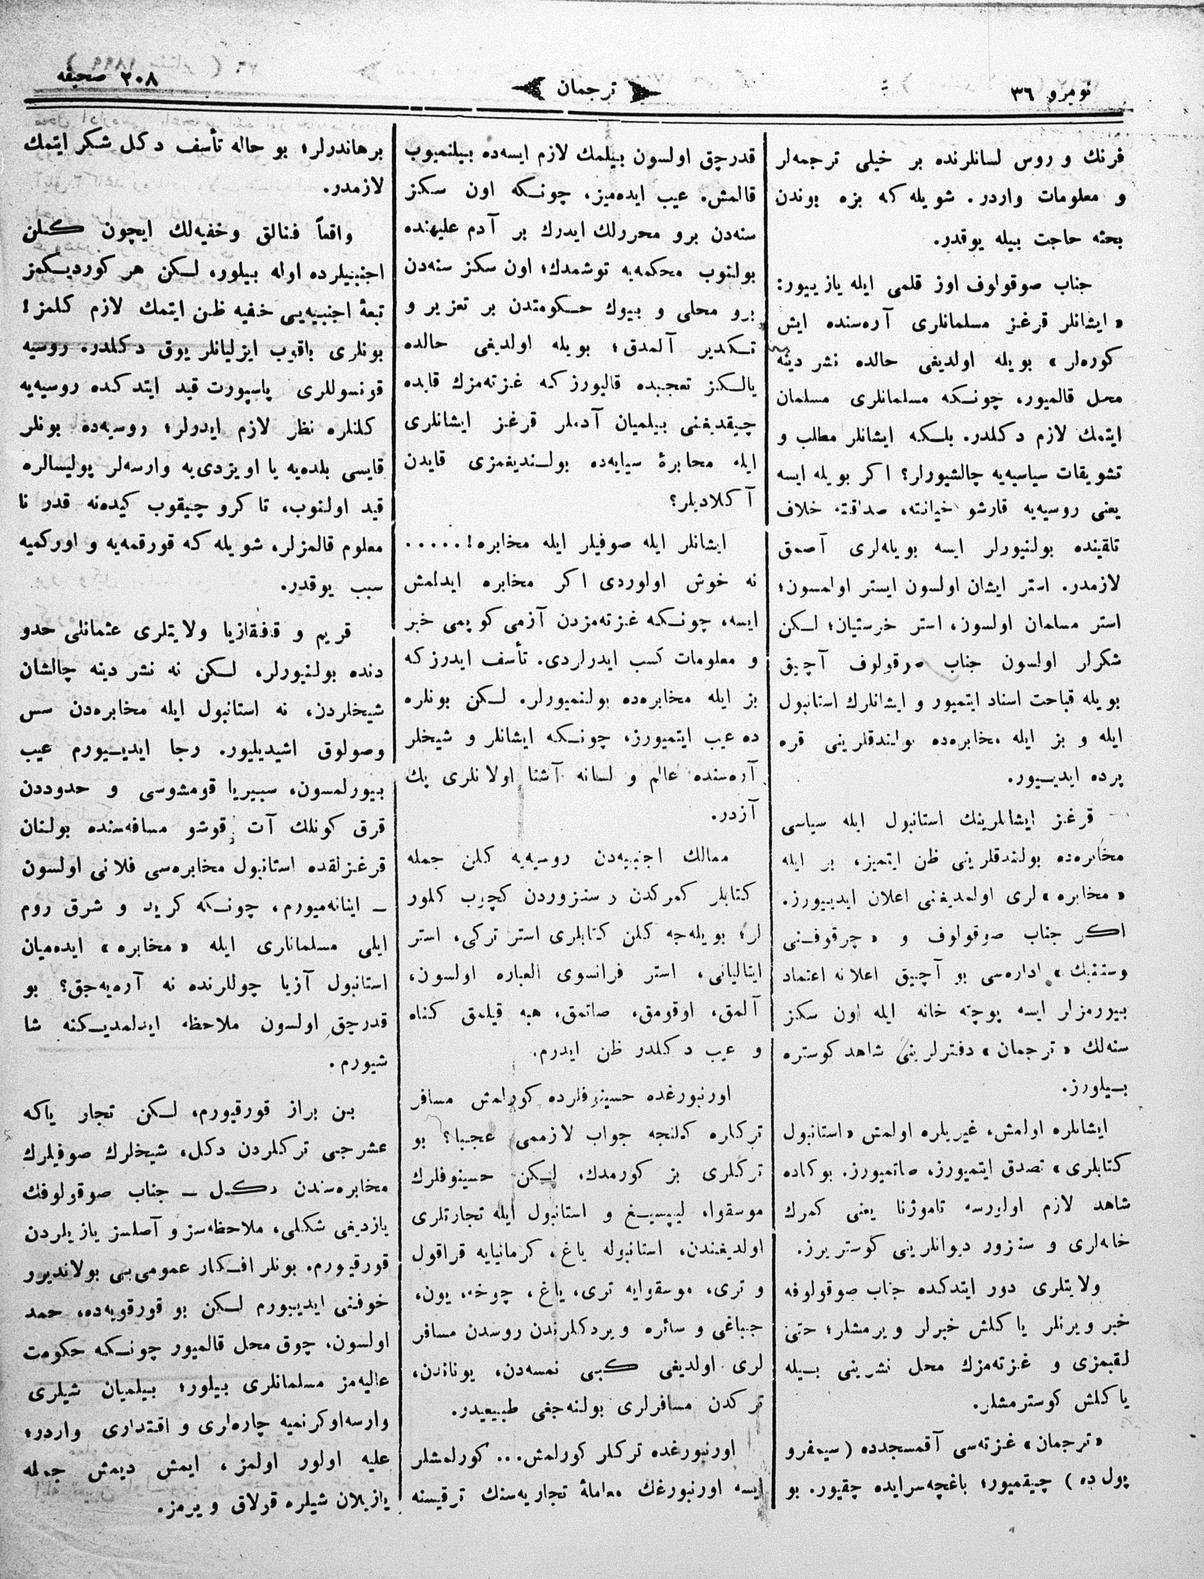 نومرو ٣٦
ترجمان
٢٠٨ صحيفه
فرنك و روس لسانلرنده بر خيلى ترجمه‌لر
و معلومات واردر. شويله كه بزه بوندن
بحثه حاجت بيله يوقدر.
جناب صوقولوف اوز قلمى ايله يازييور:
«ايشانلر قرغز مسلمانلرى آره‌سنده ايش
كوره‌لر» بويله اولديغى حالده نشر دينه
محل قالميور، چونكه مسلمانلرى مسلمان
ايتمك لازم دكلدر. بلكه ايشانلر مطلب و
تشويقات سياسيه‌يه چالشيورلر؟ اكر بويله ايسه
يعنى روسيه‌يه قارشو خيانته، صداقته خلاف
تلقينده بولنيورلر ايسه بويله‌لرى آصمق
لازمدر. استر ايشان اولسون ايستر اولمسون؛
استر مسلمان اولسون، استر خرستيان؛ لكن
شكرلر اولسون جناب صوقولوف آچيق
بويله قباحت اسناد ايتميور و ايشانلرك استانبول
ايله و بز ايله مخابره‌ده بولندقلرينى قره
پرده ايدييور.
قرغز ايشانلرينك استانبول ايله سياسى
مخابره‌ده بولندقلرينى ظن ايتميز، بز ايله
«مخابره» لرى اولمديغنى اعلان ايدييورز.
اكر جناب صوقولوف و «چرقوفنى
وستنيك» اداره‌سى بو آچيق اعلانه اعتماد
بيورمزلر ايسه پوچته خانه ايله اون سكز
سنه‌لك «ترجمان» دفترلرينى شاهد كوستره
بيلورز.
ايشانلره اولمش، غيريلره اولمش «استانبول
كتابلرى» تصدق ايتميورز، صاتميورز. بوكاده
شاهد لازم اولورسه تاموژنا يعنى كمرك
خانه‌لرى و سنزور ديوانلرينى كوستريرز.
ولايتلرى دور ايتدكده جناب صوقولوفه
خبر ويرنلر ياكلش خبرلر ويرمشلر؛ حتى
لقبمزى و غزته‌مزك محل نشرينى بيله
ياكلش كوسترمشلر.
«ترجمان» غزته‌سى آقمسجدده (سيمفرو
پولده) چيقميور؛ باغچه‌سرايده چقيور. بو
قدرچق اولسون بيلمك لازم ايسه‌ده بيلنميوب
قالمش. عيب ايده‌ميز، چونكه اون سكز
سنه‌دن برو محررلك ايدرك بر آدم عليهنده
بولنوب محكمه‌يه توشمدك؛ اون سكز سنه‌دن
برو محلى و بيوك حكومتدن بر تعزير و
تكدير آلمدق؛ بويله اولديغى حالده
يالكز تعجبده قاليورز كه غزته‌مزك قايده
چيقديغنى بيلميان آدملر قرغز ايشانلرى
ايله مخابرهٔ سيايه‌ده بولنديغمزى قايدن
آكلاديلر؟
ايشانلر ايله صوفيلر ايله مخابره!.....
نه خوش اولوردى اكر مخابره ايدلمش
ايسه، چونكه غزته‌مزدن آزمى كوپمى خبر
و معلومات كسب ايدرلردى. تأسف ايدرز كه
بز ايله مخابره‌ده بولنميورلر. لكن بونلره
ده عيب ايتميورز، چونكه ايشانلر و شيخلر
آره‌سنده عالم و لسانه آشنا اولانلرى پك
آزدر.
ممالك اجنبيه‌دن روسيه‌يه كلن جمله
كتابلر كمركدن و سنزوردن كچوب كلور
لر؛ بويله‌جه كلن كتابلرى استر تركى، استر
ايتاليانى، استر فرانسوى العباره اولسون،
آلمق، اوقومق، صاتمق، هبه قيلمق كناه
و عيب دكلدر ظن ايدرم.
اورنبورغده حسينوفلرده كورلمش مسافر
تركلره كلنجه جواب لازممى عجبا؟ بو
تركلرى بز كورمدك. ليكن حسينوفلرك
موسقوا، ليپسيغ و استانبول ايله تجارتلرى
اولديغندن، استانبوله ياغ، كرمانيايه قراقول
و ترى، موسقوايه ترى، ياغ، چوخه، يون،
جباغى و سائره ويردكلرندن روسدن مسافر
لرى اولديغى كبى نمسه‌دن، يوناندن،
تركدن مسافرلرى بولنه‌جغى طبيعيدر.
اورنبورغده تركلر كورلمش... كورلمشلر
ايسه اورنبورغك معاملهٔ تجاريه‌سنك ترقيسنه
برهاندرلر؛ بو حاله تأسف دكل شكر ايتمك
لازمدر.
واقعاً فنالق وخفيه‌لك ايچون كلن
اجنبيلرده اوله بيلور، لكن هر كورديكمز
تبعهٔ اجنبيه‌يى خفيه ظن ايتمك لازم كلمز!
بونلرى باقوب ايزليانلر يوق دكلدر. روسيه
قونسوللرى پاسپورت قيد ايتدكده روسيه‌يه
كلنلره نظر لازم ايدرلر؛ روسيه‌ده بونلر
قايسى بلده‌يه يا اويزدى‌يه وارسه‌لر پوليسالره
قيد اولنوب، تا كرو چيقوب كيده‌نه قدر نا
معلوم قالمزلر، شويله كه قورقمه‌يه و اوركميه
سبب يوقدر.
قريم و قفقازيا ولايتلرى عثمانلى حدو
دنده بولنيورلر، لكن نه نشر دينه چالشان
شيخلردن، نه استانبول ايله مخابره‌دن سس
وصولوق اشيديليور. رجا ايدييورم عيب
بيورلمسون، سيبيريا قومشوسى و حدوددن
قرق كونلك آت قوشو مسافه‌سنده بولنان
قرغزلقده استانبول مخابره‌سى فلانى اولسون
ـ اينانه‌ميورم، چونكه كريد و شرق روم
ايلى مسلمانلرى ايله «مخابره» ايده‌ميان
استانبول آزيا چوللرنده نه آره‌يه‌جق؟ بو
قدرچق اولسون ملاحظه ايدلمديكنه شا
شيورم.
بن براز قورقيورم، لكن تجار ياكه
عشرجى تركلردن دكل، شيخلرك صوفيلرك
مخابره‌سندن دكل ـ جناب صوقولوفك
يازديغى شكلى، ملاحظه‌سز و آصلسز يازيلردن
قورقيورم. بونلر افكار عموميه‌يى بولانديرر
خوفنى ايدييورم لكن بو قورقويه‌ده، حمد
اولسون، چوق محل قالميور چونكه حكومت
عاليه‌مز مسلمانلرى بيلور؛ بيلميان شيلرى
وارسه‌اوكرنميه چاره‌لرى و اقتدارى واردر؛
عليه اولور اولمز، ايمش ديمش جمله
يازيلان شيلره قولاق ويرمز.